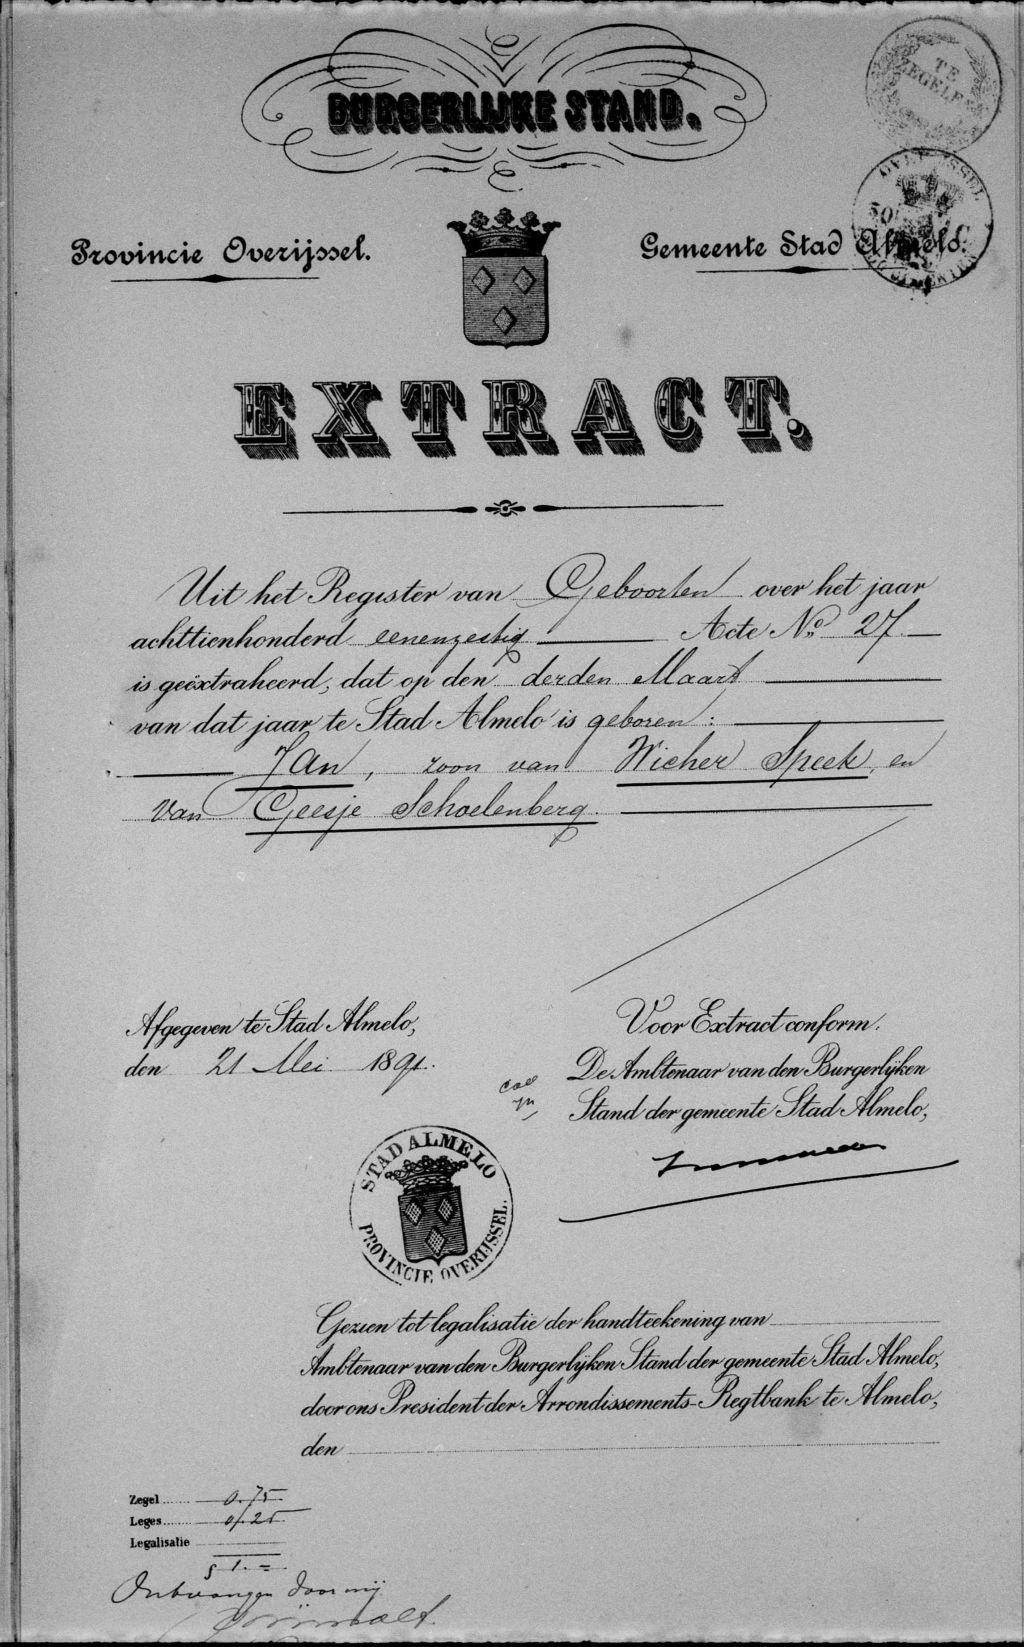 BURGERLIJKE STAND.
TE ZEGELEN
OVERIJSSEL
50
Provincie Overijssel.
Gemeente Stad Almelo.
EXTRACT.
Uit het Register van Geboorten over het jaar
achttienhonderd eenenzestig Acte No. 27.
is geëxtraheerd, dat op den derden Maart
van dat jaar te Stad Almelo is geboren:
Jan, zoon van Wicher Speek, en
van Geesje Schoelenberg.
Afgegeven te Stad Almelo,
den 21 Mei 1891.
Voor Extract conform.
De Ambtenaar van den Burgerlijken
Stand der gemeente Stad Almelo,
STAD ALMELO
PROVINCIE OVERIJSSEL.
Gezien tot legalisatie der handteekening van
Ambtenaar van den Burgerlijken Stand der gemeente Stad Almelo,
door ons President der Arrondissements-Regtbank te Almelo,
den
Zegel 0.75
Leges 0.25
Legalisatie
ƒ 1.=
Ontvangen door mij